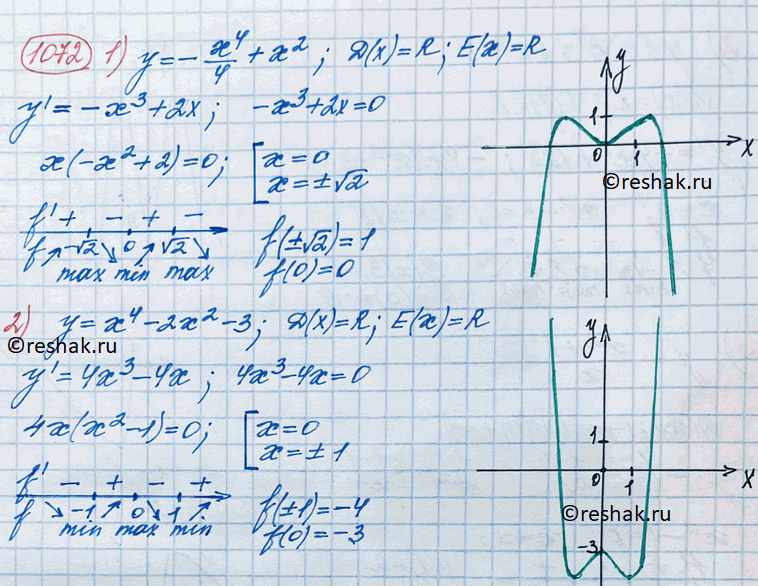 1072 1) y = -x⁴/4 + x² ; D(x) = R ; E(x) = R
y' = -x³ + 2x ; -x³ + 2x = 0
x(-x² + 2) = 0 ; [ x = 0
x = ±√2
f' + - + -
f ↗ -√2 ↘ 0 ↗ √2 ↘
max min max
f(±√2) = 1
f(0) = 0
y
1
0 1 x
©reshak.ru
2) y = x⁴ - 2x² - 3 ; D(x) = R ; E(x) = R
©reshak.ru
y' = 4x³ - 4x ; 4x³ - 4x = 0
4x(x² - 1) = 0 ; [ x = 0
x = ±1
f' - + - +
f ↘ -1 ↗ 0 ↘ 1 ↗
min max min
f(±1) = -4
f(0) = -3
y
1
0 1 x
©reshak.ru
-3